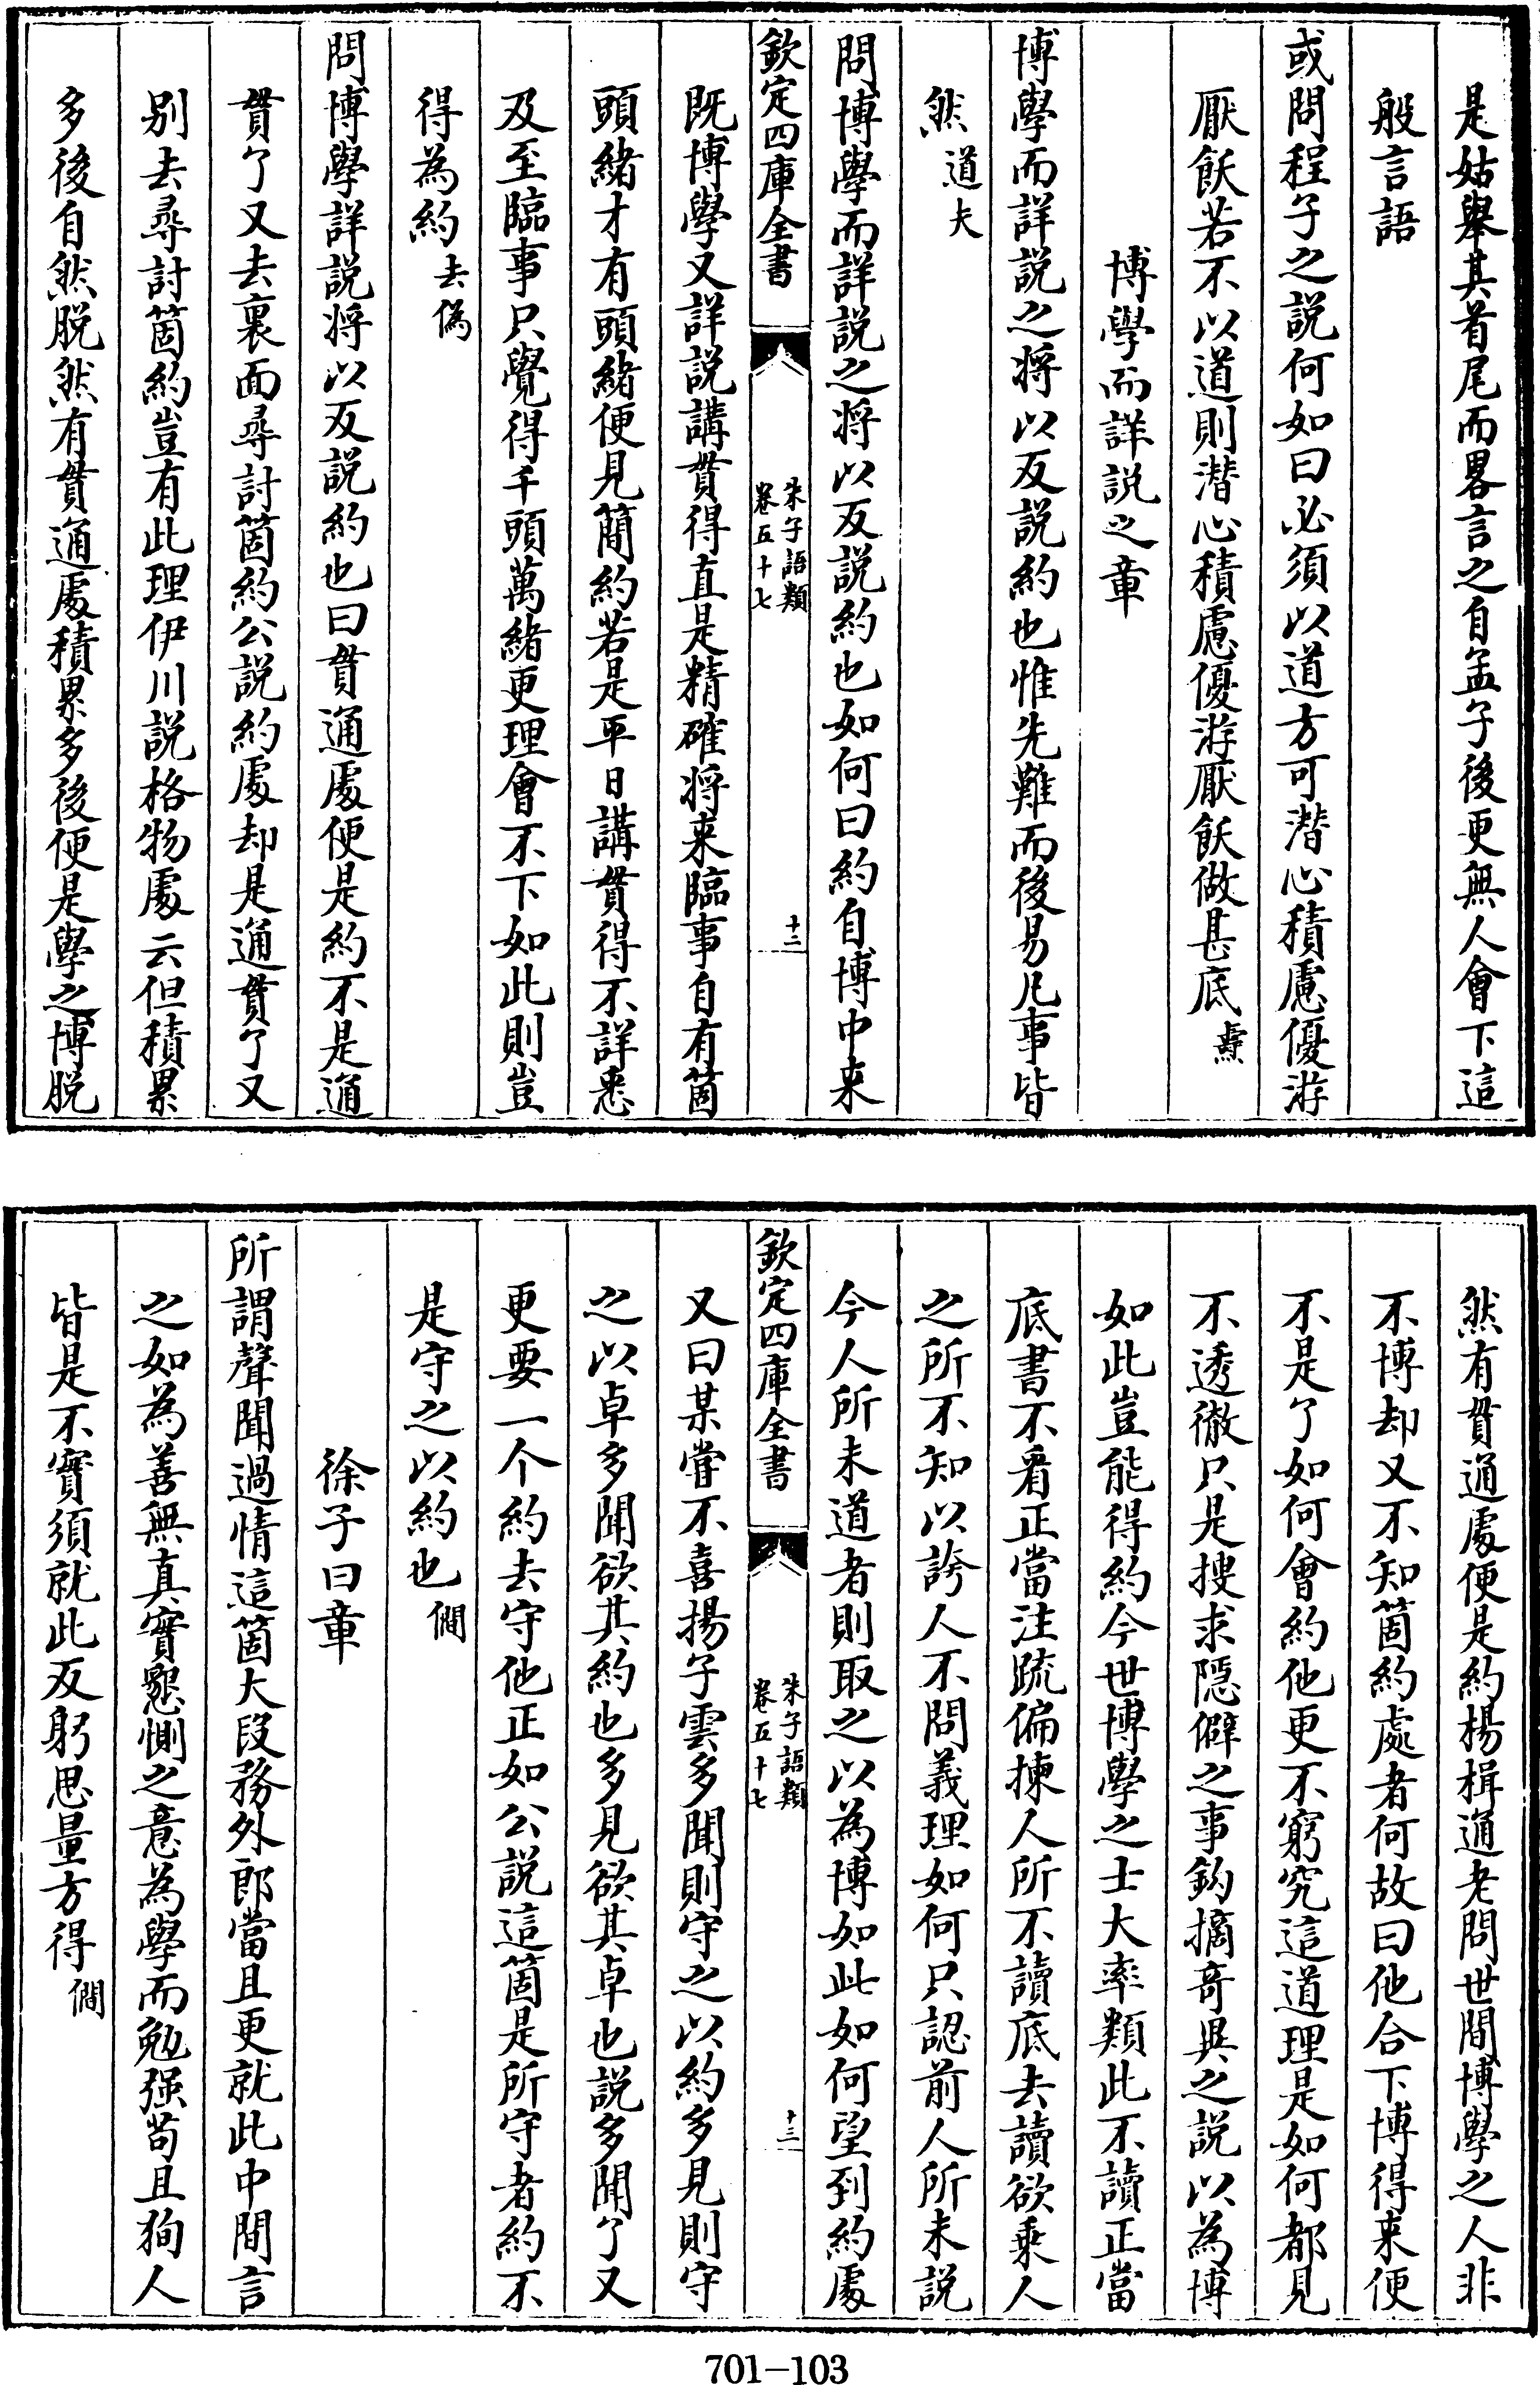 是姑舉其首尾而畧言之自孟子後更無人會下這
般言語
或問程子之說何如曰必須以道方可潜心積慮優游
厭飫若不以道則潜心積慮優游厭飫做甚底 燾
博學而詳說之章
博學而詳說之將以反說約也惟先難而後易凡事皆
然 道夫
問博學而詳說之將以反說約也如何曰約自博中来
欽定四庫全書
朱子語類
卷五十七
十二
既博學又詳說講貫得直是精確將来臨事自有箇
頭緒才有頭緒便見簡約若是平日講貫得不詳悉
及至臨事只覺得千頭萬緒更理會不下如此則豈
得為約 去偽
問博學詳說將以反說約也曰貫通處便是約不是通
貫了又去裏面尋討箇約公說約處却是通貫了又
别去尋討箇約豈有此理伊川說格物處云但積累
多後自然脱然有貫通處積累多後便是學之博脱
然有貫通處便是約楊楫通老問世間博學之人非
不博却又不知箇約處者何故曰他合下博得来便
不是了如何會約他更不窮究這道理是如何都見
不透徹只是搜求隱僻之事鈎摘奇異之說以為博
如此豈能得約今世博學之士大率類此不讀正當
底書不看正當注疏偏揀人所不讀底去讀欲乘人
之所不知以誇人不問義理如何只認前人所未說
今人所未道者則取之以為博如此如何望到約處
欽定四庫全書
朱子語類
卷五十七
十三
又曰某嘗不喜揚子雲多聞則守之以約多見則守
之以卓多聞欲其約也多見欲其卓也說多聞了又
更要一个約去守他正如公說這箇是所守者約不
是守之以約也 僩
徐子曰章
所謂聲聞過情這箇大段務外郎當且更就此中間言
之如為善無真實懇惻之意為學而勉强苟且狥人
皆是不實須就此反躬思量方得 僩
701-103